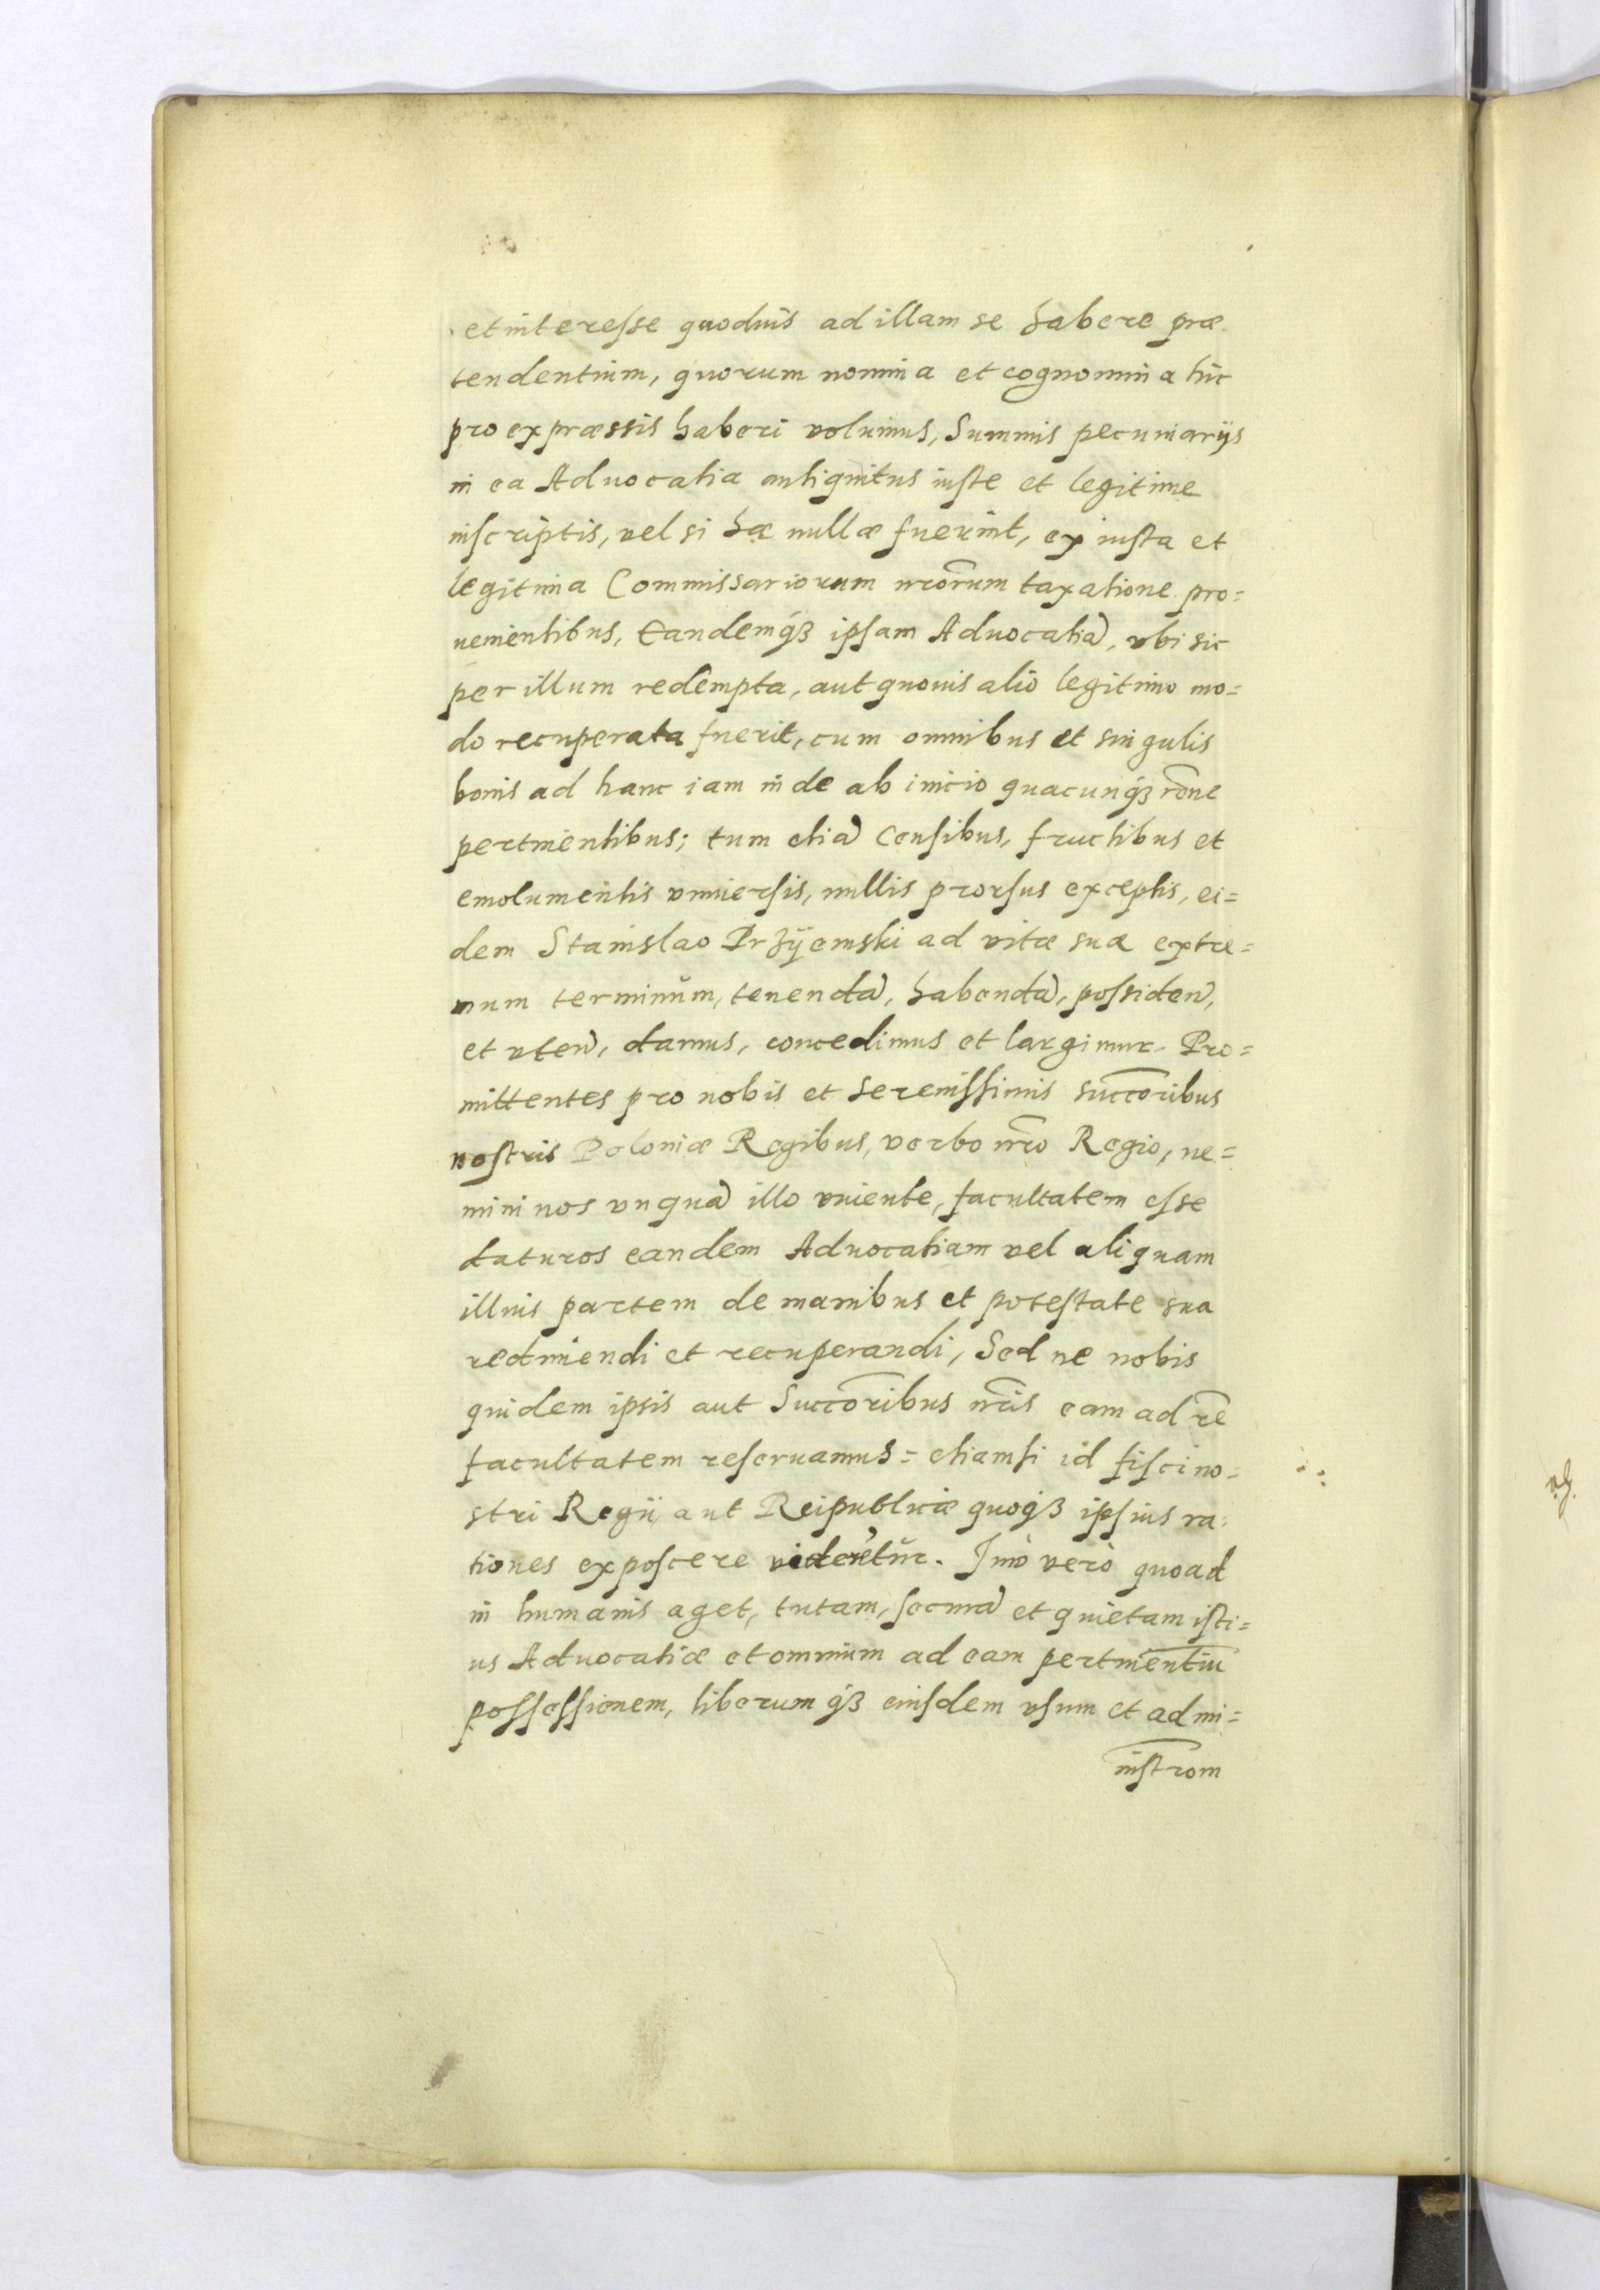 et interesse quoduis ad illam se habere præ-
tendentium, quorum nomina et cognomina hic
pro expræssis haberi volumus, Summis pecuniarijs
in ea Aduocatia antiquitus iuste et legitime
inscriptis, vel si hæ nullæ fuerint, ex iusta et
legitima Commissariorum nrōrum taxatione pro=
uenientibus, Eandemq́ꝫ ipsam Aduocatiã, vbi sic
per illum redempta, aut quouis alio legitimo mo=
do recuperata fuerit, cum omnibus et singulis
bonis ad hanc iam inde ab inicio quacunq́ꝫ rõne
pertinentibus; tum etiã Censibus, fructibus et
emolumentis vniuersis, nullis prorsus exceptis, ei=
dem Stanislao Przÿemski ad vitæ suæ extre=
mum terminum, tenendã, habendã, possiden̄,
et vten̄, damus, concedimus et largimur. Pro=
mittentes pro nobis et Serenissimis succōribus
nostris Poloniæ Regibus, verbo nr̄o Regio, ne=
mini nos vnquã illo viuente, facultatem esse
daturos eandem Aduocatiam vel aliquam
illius partem de manibus et potestate sua
redimendi et recuperandi, Sed ne nobis
quidem ipsis aut Succōribus nr̄is eam ad rē
facultatem reseruamus= etiamsi id fisci no=
stri Regii aut Reipublicæ quoq́ꝫ ipsius ra-
tiones exposcere viderētur. Imò verò quoad
in humanis aget, tutam, securã et quietam isti=
us Aduocatiæ et omnium ad eam pertinentiū
possessionem, liberumq́ꝫ eiusdem vsum et admi=
nistrōm